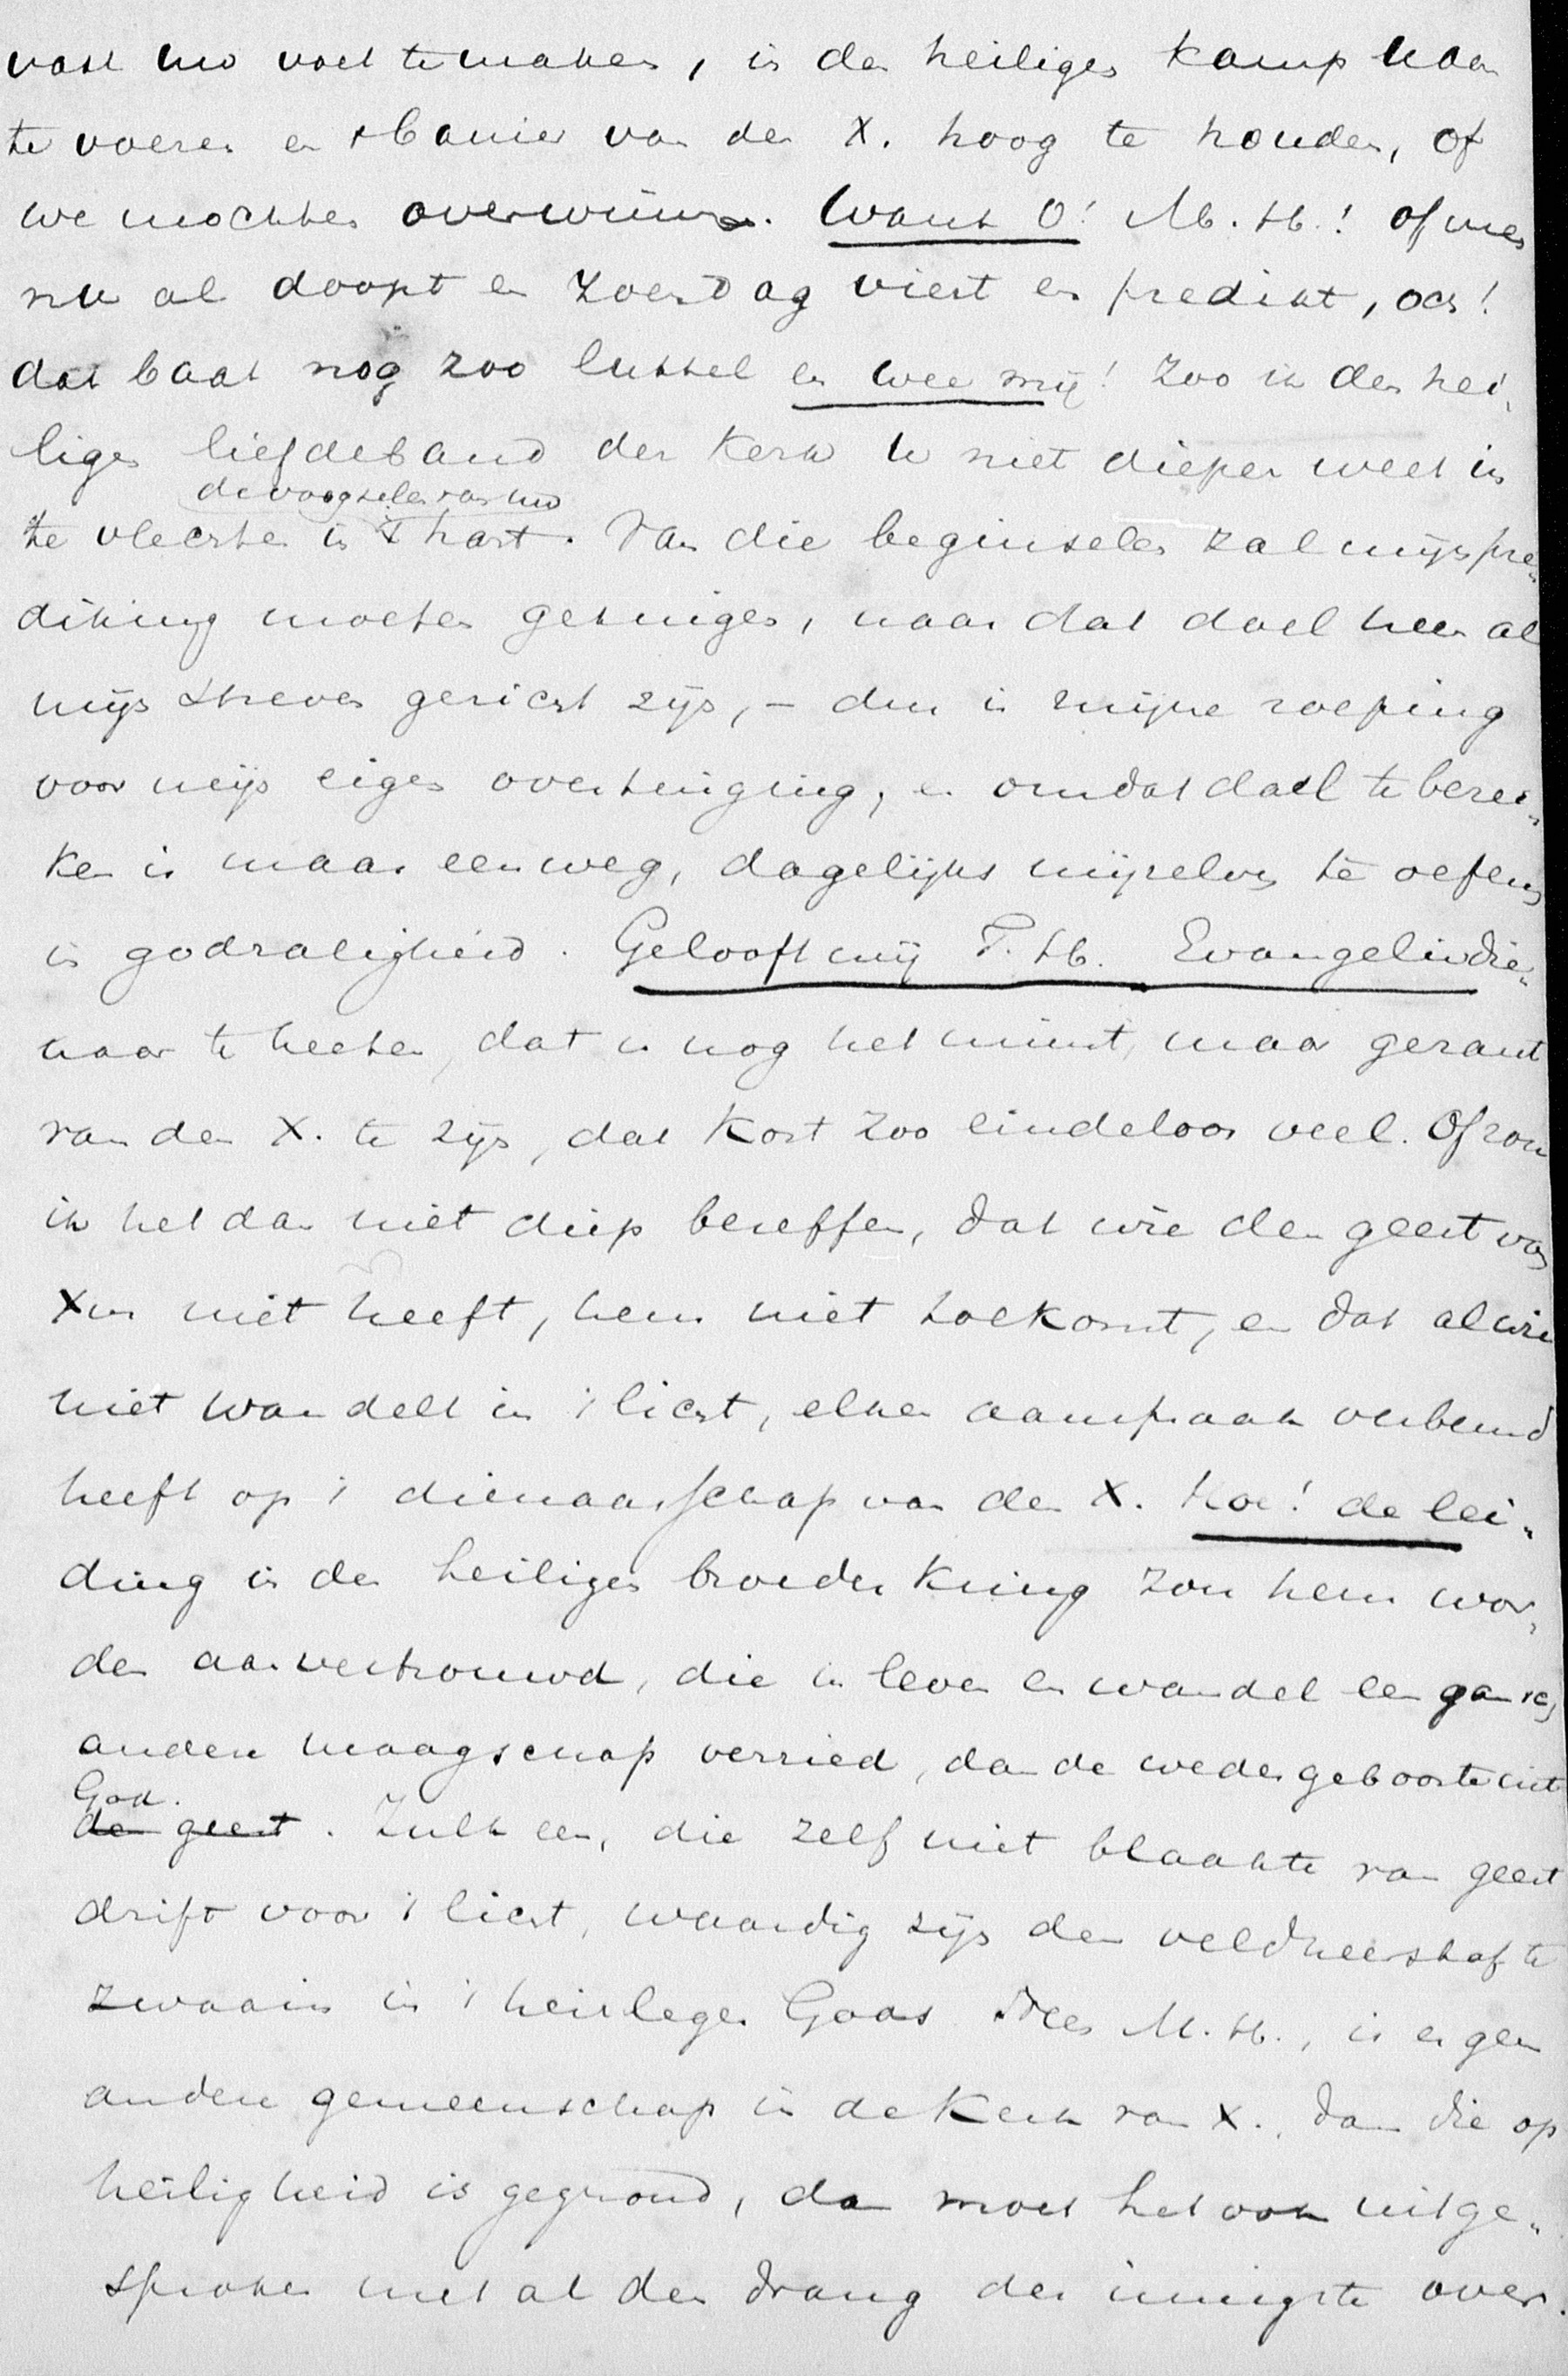 vast uw voet te maken, in den heiligen kamp haar
te voeren en 't banier van den X. hoog te houden, of
we mochten overwinnen. Want O! M. H.! of men
nu al doopt en Zondag viert en predikt, och!
dat baat nog zoo luttel en wee mij! zoo ik den hei-
ligen liefdeband der kerk U niet dieper weet in
de voegselen van uw
te vlechten in 't hart. Van die beginselen zal mijn pre-
diking moeten getuigen, naar dat doel heen al
mijn streven gericht zijn, – dus is mijne roeping
voor mijn eigen overtuiging, en om dat doel te berei-
ken is maar een weg, dagelijks mijzelven te oefenen
in godzaligheid. Gelooft mij T. H. Evangeliedie-
naar te heeten, dat is nog het minst, maar gezant
van den X. te zijn, dat kost zoo eindeloos veel. Of zou
ik het dan niet diep beseffen, dat wie den geest van
Xus niet heeft, hem niet toekomt, en dat al wie
niet wandelt in 't licht, elken aanspraak verbeurd
heeft op 't dienaarschap van den X. Hoe! de lei-
ding in den heiligen broederkring zou hem wor-
den aanvertrouwd, die in leven en wandel een gansch
andere maagschap verried, dan de wedergeboorte uit
God.
den geest. Zulk een, die zelf niet blaakte van geest
drift voor 't licht, waardig zijn den veldheerstaf te
zwaaien in 't heirleger Gods. Neen M. H., is er geen
andere gemeenschap in de Kerk van X., dan die op
heiligheid is gegrond, dan moet het ook uitge-
sproken met al den drang der innigste over-